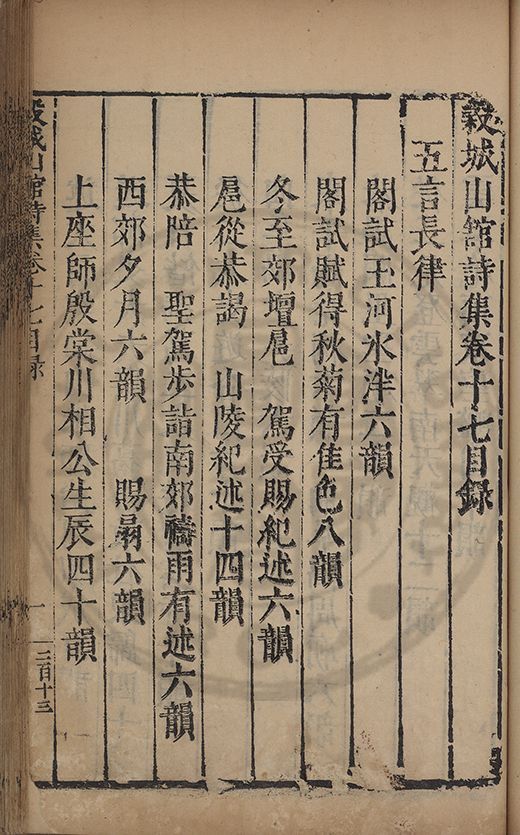 穀城山館詩集卷十七目録
五言長律
閣試玉河氷泮六韻
閣試賦得秋菊有佳色八韻
冬至郊壇扈　駕受賜紀述六韻
扈從恭謁　山陵紀述十四韻
恭陪　聖駕步詣南郊禱雨有述六韻
西郊夕月六韻　賜扇六韻
上座師殷棠川相公生辰四十韻
穀城山館詩集卷十七目録
一
二百十三